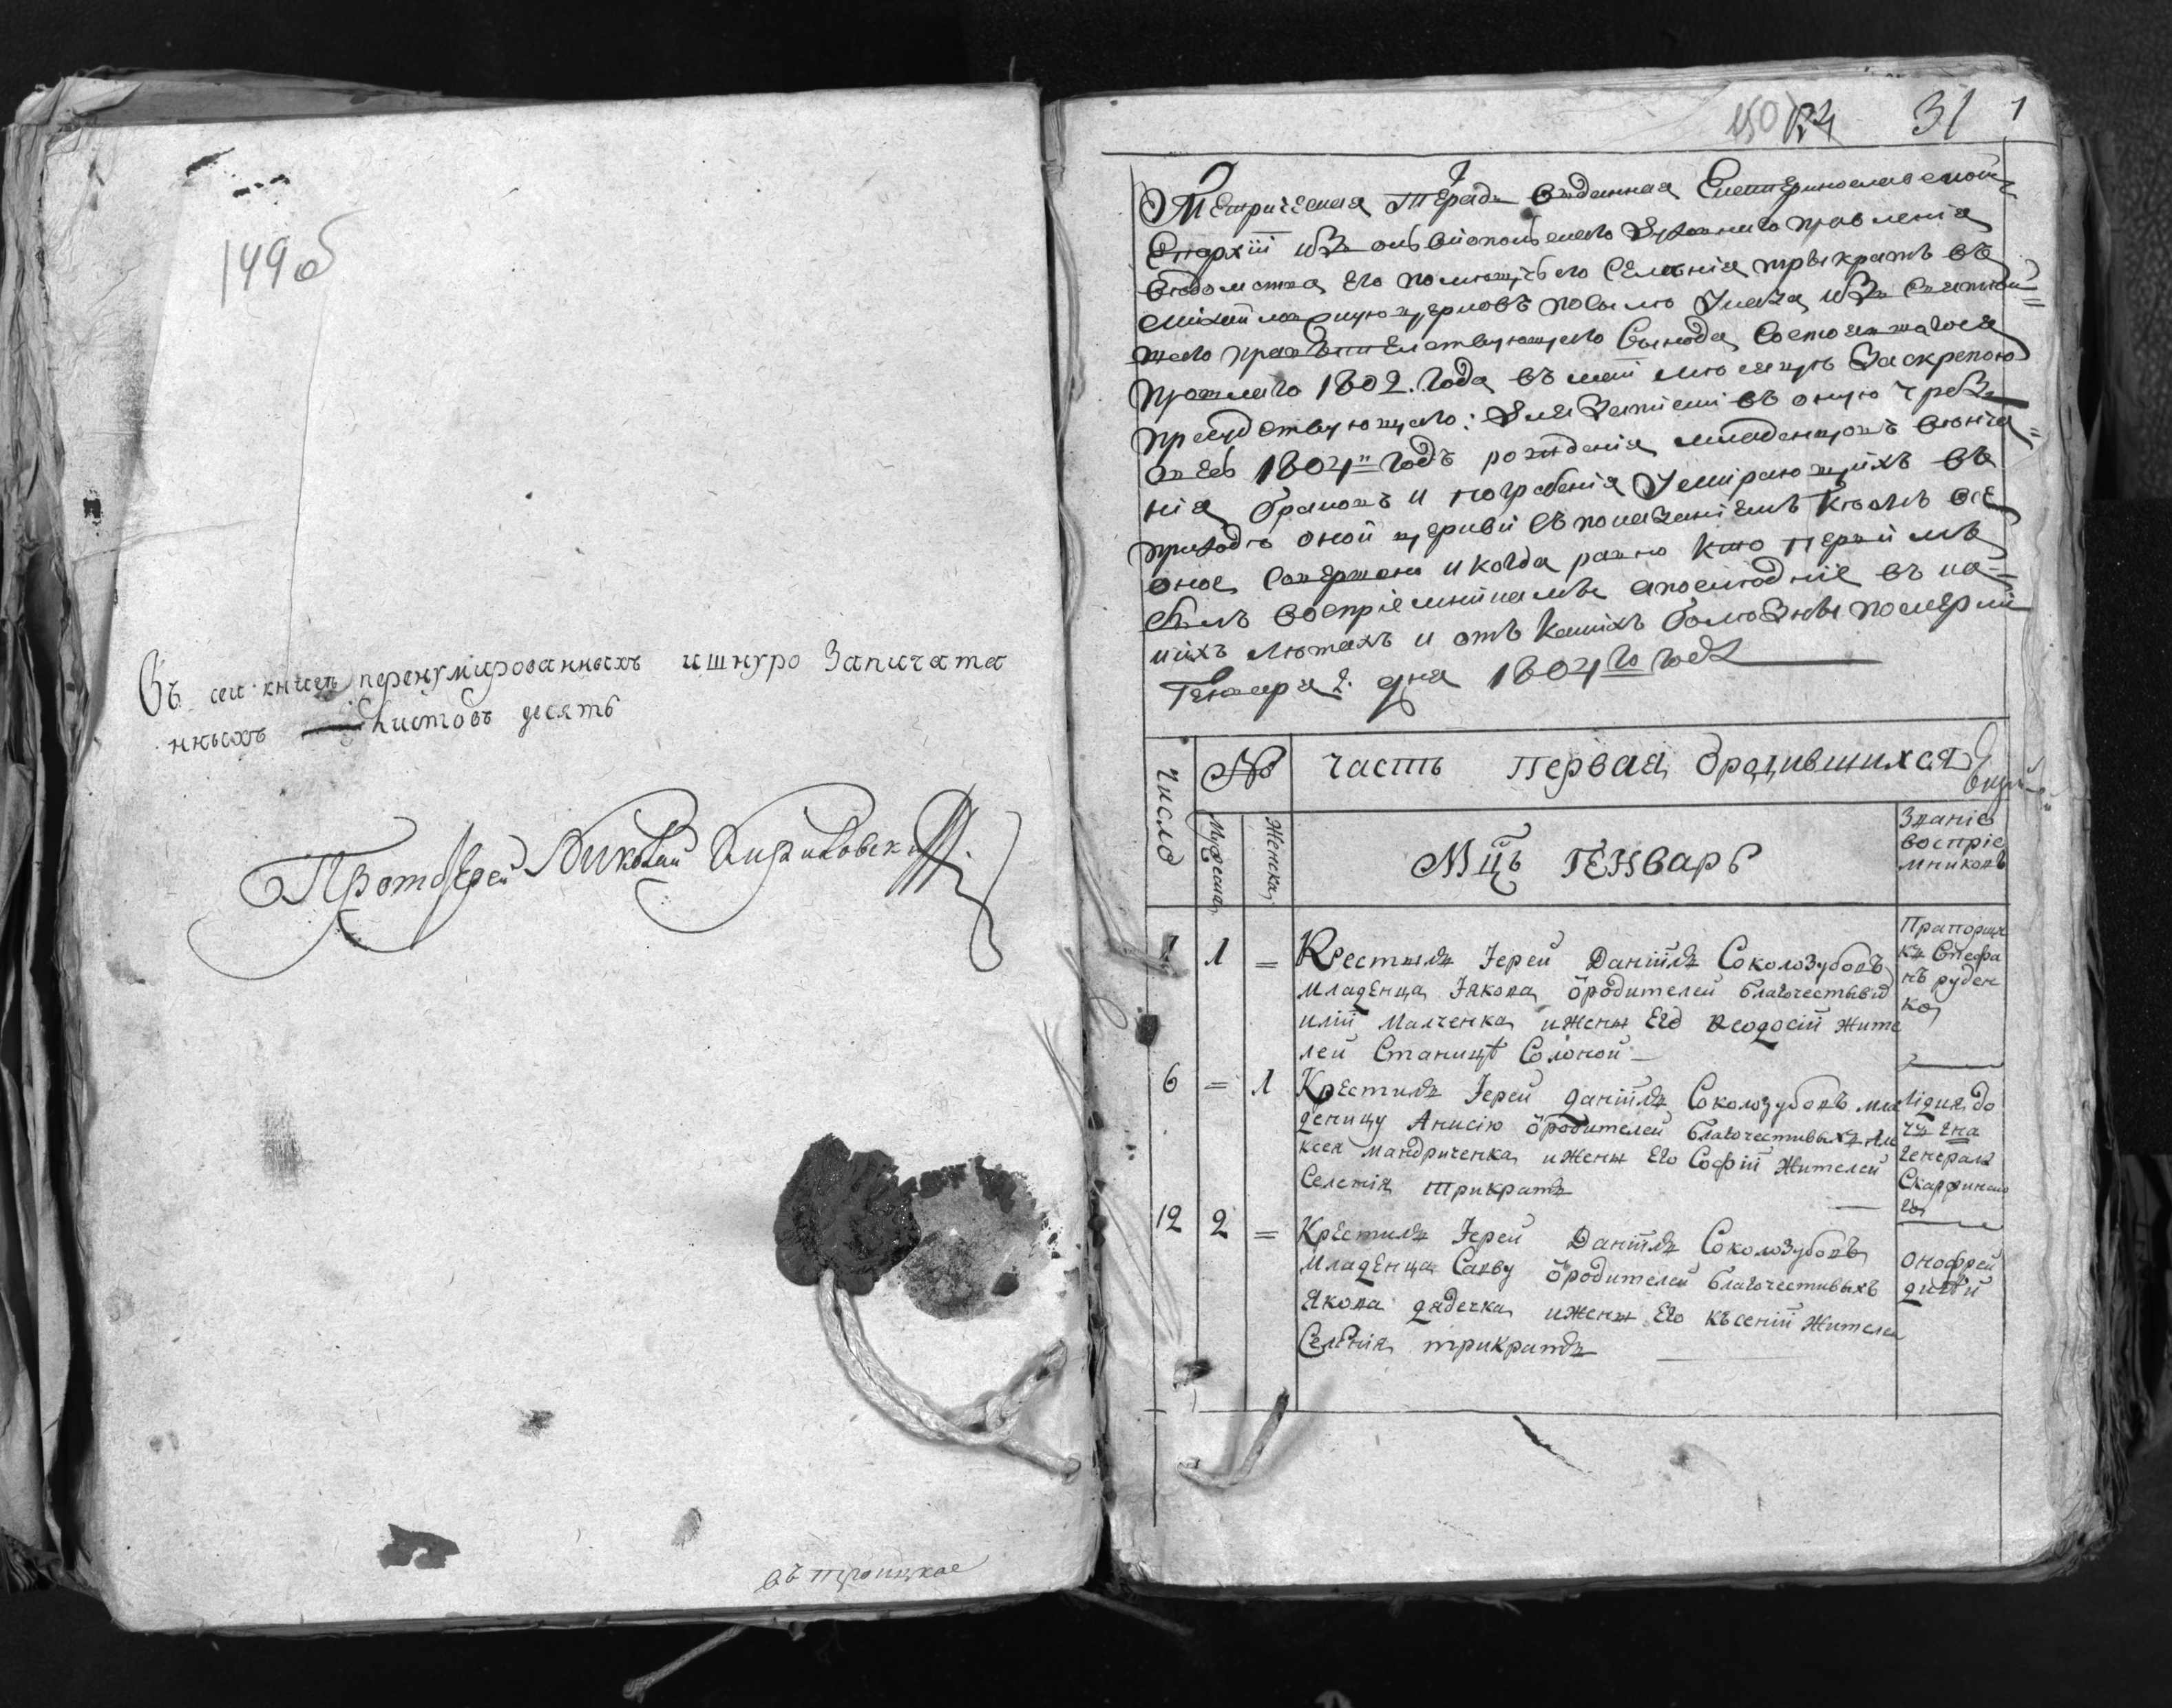 149об
Въ сей книгѣ перенумированныхъ ишнуро Запичата
нныхъ Листовъ десять
Протоіерей Николай
въ троицкое
150 31 1
Метрическая Тетрадь выданная Екатеринославской
Епархіи изъ ольвіопольскаго духовнаго правленія
вѣдомства его селенія трыкратъ въ
михайловскую церковъ по силѣ Указа изъ Святѣй=
шаго правительствующаго Сынода Состоявшагося
прошлаго 1802. Года въ маіи мѣсяцѣ Заскрепою
присудствующаго: для Записки въ оную чрезъ
весь 1804й годъ рожденія младенцовъ вѣнча=
нія браковъ и погребенія Умирающихъ въ
приходѣ оной церкви съ показаніемъ кѣмъ всё
оное Совершено и когда равно кто первимъ
былъ воспріемникамъ апослѣдніе въ ка=
кихъ лѣтахъ и отъ какихъ болѣзнъ померли
Генваря 2. дня 1804го года
число № часть первая ородившихся
Мужеска Женска Мцъ Генварь Званіе
воспріе
мниковъ
1 1 = Крестилъ Іерей Даніилъ Соколозубовъ
младенца Іякова ѿродителей благочестывы
илїи Малченка ижены Его Ѳеодосїи жите
лей Станицѣ Соленой
Прапорщи
къ Стефа
нъ руден
ко
6 = 1 Крестилъ Іерей даніилъ Соколозубовъ мла
деницу Анисію ѿродителей благочестивыхъ Але
ксея мандриченка ижены Его Софїи Жителей
Селенія трикратъ
Лідия до
чь Ена
Генерала
12 2 = Крестилъ Іерей Даніилъ Соколозубовъ
младенца Савву ѿродителей благочестивыхъ
якова дядечка ижены Его късенїи Жителей
Селенія трикратъ
Онофрей